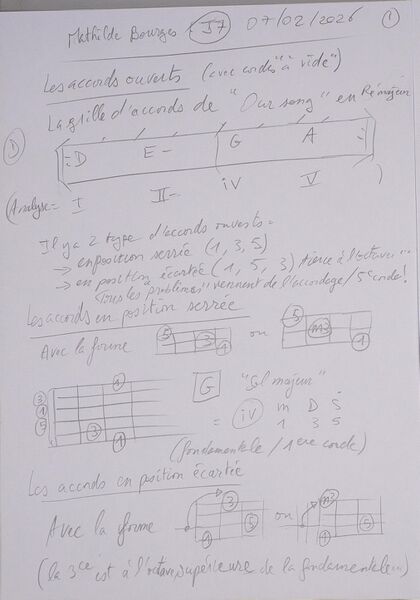 Mathilde Bourges J7 07/02/2026 1
Les accords ouverts (avec cordes "à vide")
La grille d'accords de "Our song" en Ré majeur
D
D E- G A
(Analyse = I II- IV V )
Il y a 2 type d'accords ouverts =
→ en position serrée (1, 3, 5)
→ en position écartée (1, 5, 3) tierce à l'octave
Tous les "problèmes" viennent de l'accordage / 5e corde!
Les accords en position serrée
Avec la forme 5 3 1 ou 5 m3 1
3 1 5 1 3 1 G "Sol majeur"
= IV M D 5
1 3 5
(fondamentale / 1ere corde)
Les accords en position écartée
Avec la forme 3 1 5 ou m3 1 5
(la 3ce est à l'octave supérieure de la fondamentale)